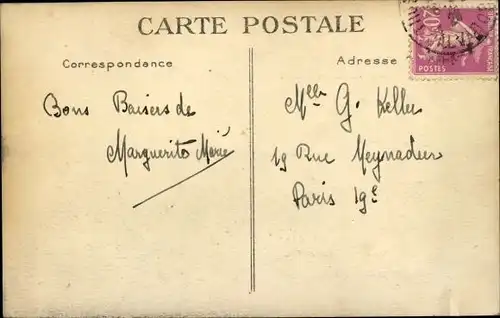 CARTE POSTALE
Correspondance
Adresse
20c
POSTES
Bons Baisers de
Marguerite Marie
Mlle G. Keller
19 Rue Meynadier
Paris 19e